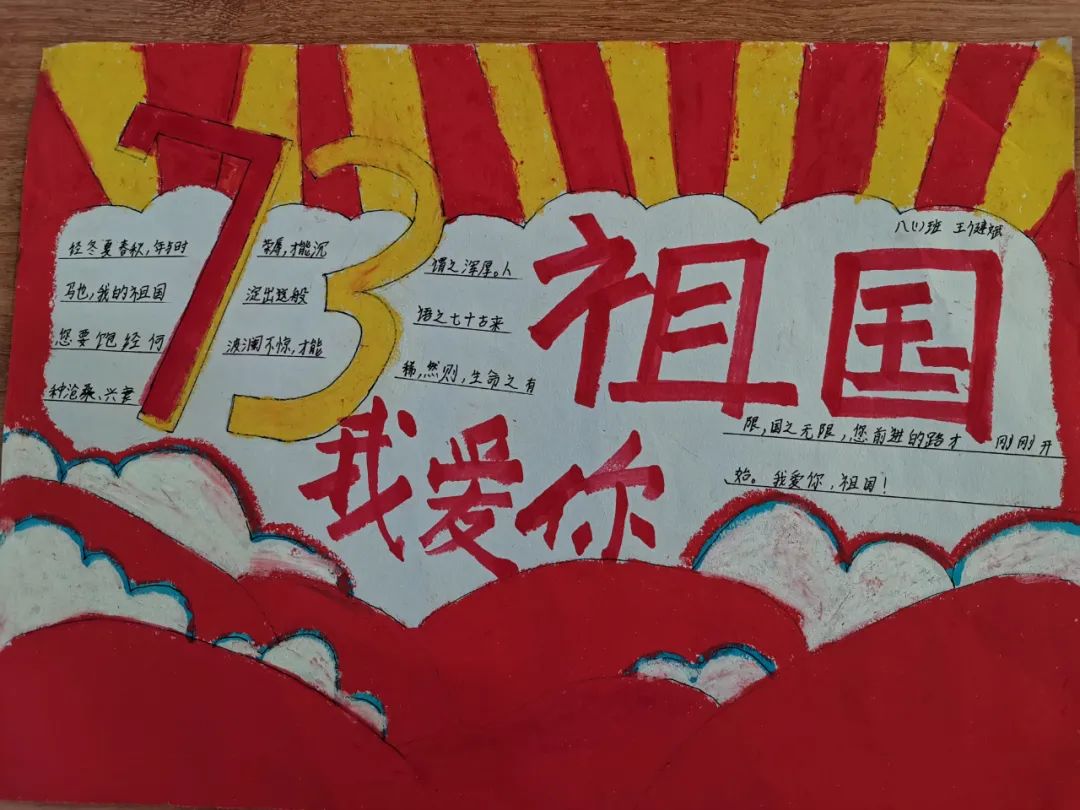 73
祖国
我爱你
八(1)班
经冬夏春秋,年与时
驰,我的祖国
您要饱经何
种沧桑、兴衰
荣辱,才能沉
淀出这般
波澜不惊,才能
谓之浑厚。人
语之七十古来
稀,然则,生命之有
限,国之无限,您前进的路才 刚刚开
始。我爱你,祖国!